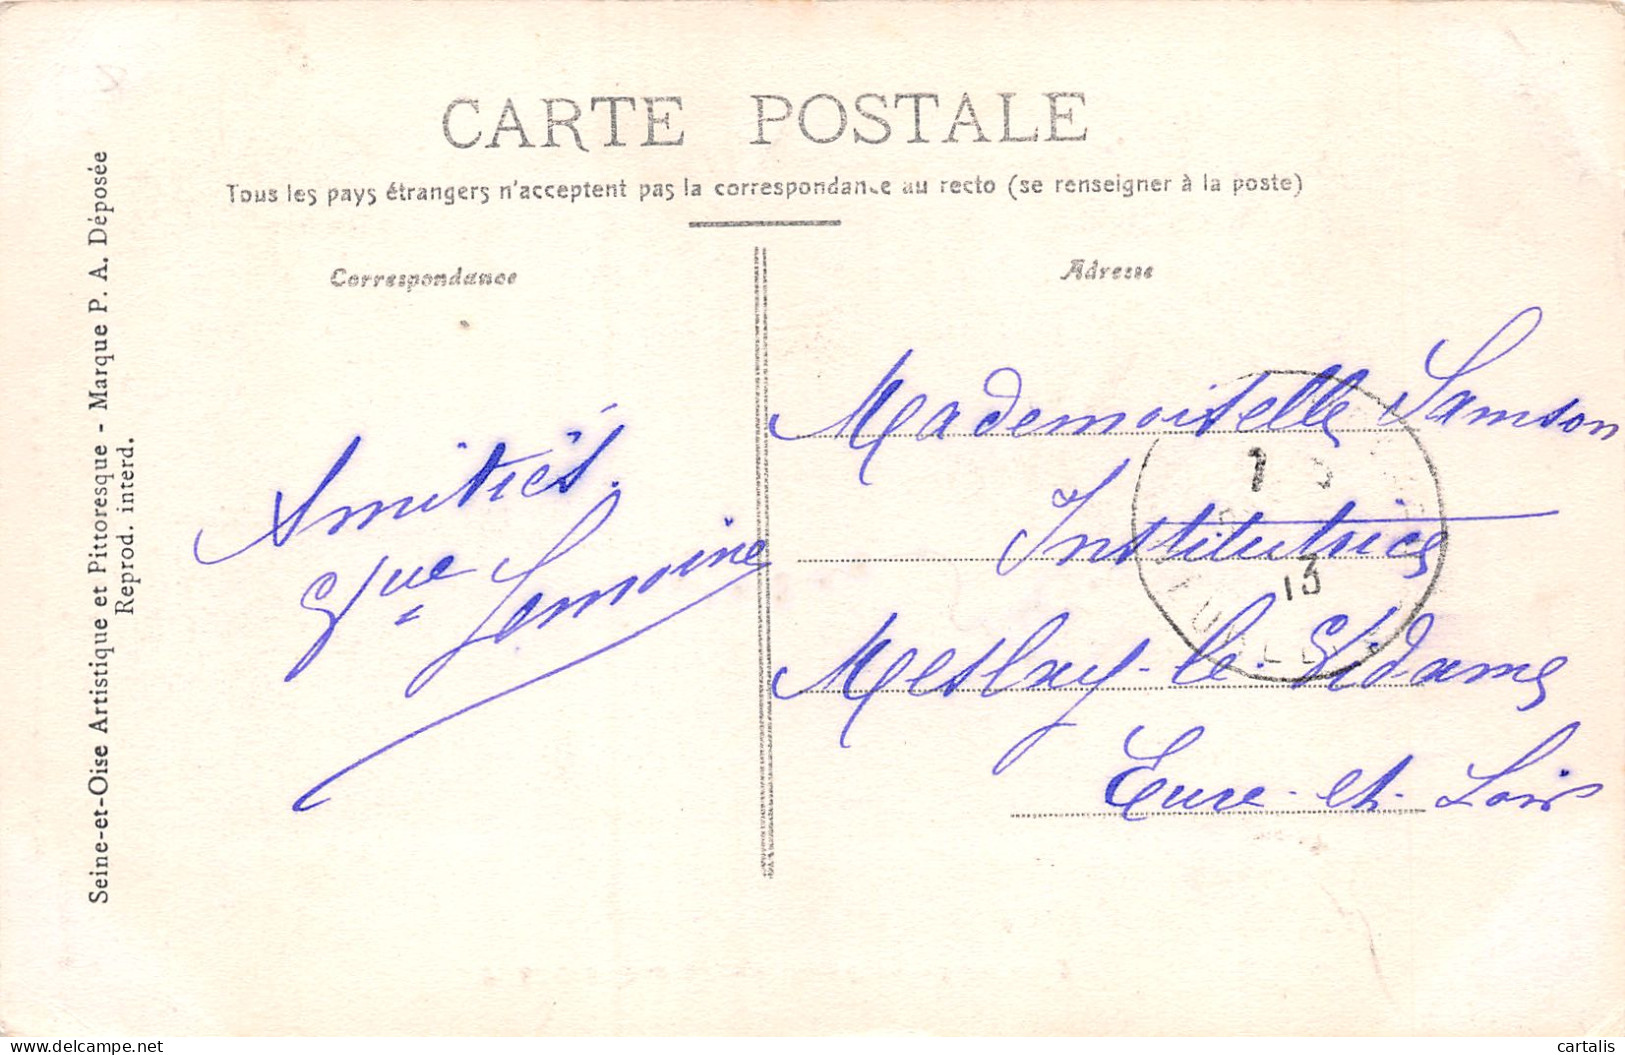 CARTE POSTALE
Tous les pays étrangers n'acceptent pas la correspondance au recto (se renseigner à la poste)
Correspondance
Adresse
Seine-et-Oise Artistique et Pittoresque - Marque P. A. Déposée
Reprod. interd.
Amitiés.
Lemoine
Mademoiselle Samson
Institutrice
Meslay-le-Vidame
Eure-et-Loir
13
cartalis
www.delcampe.net